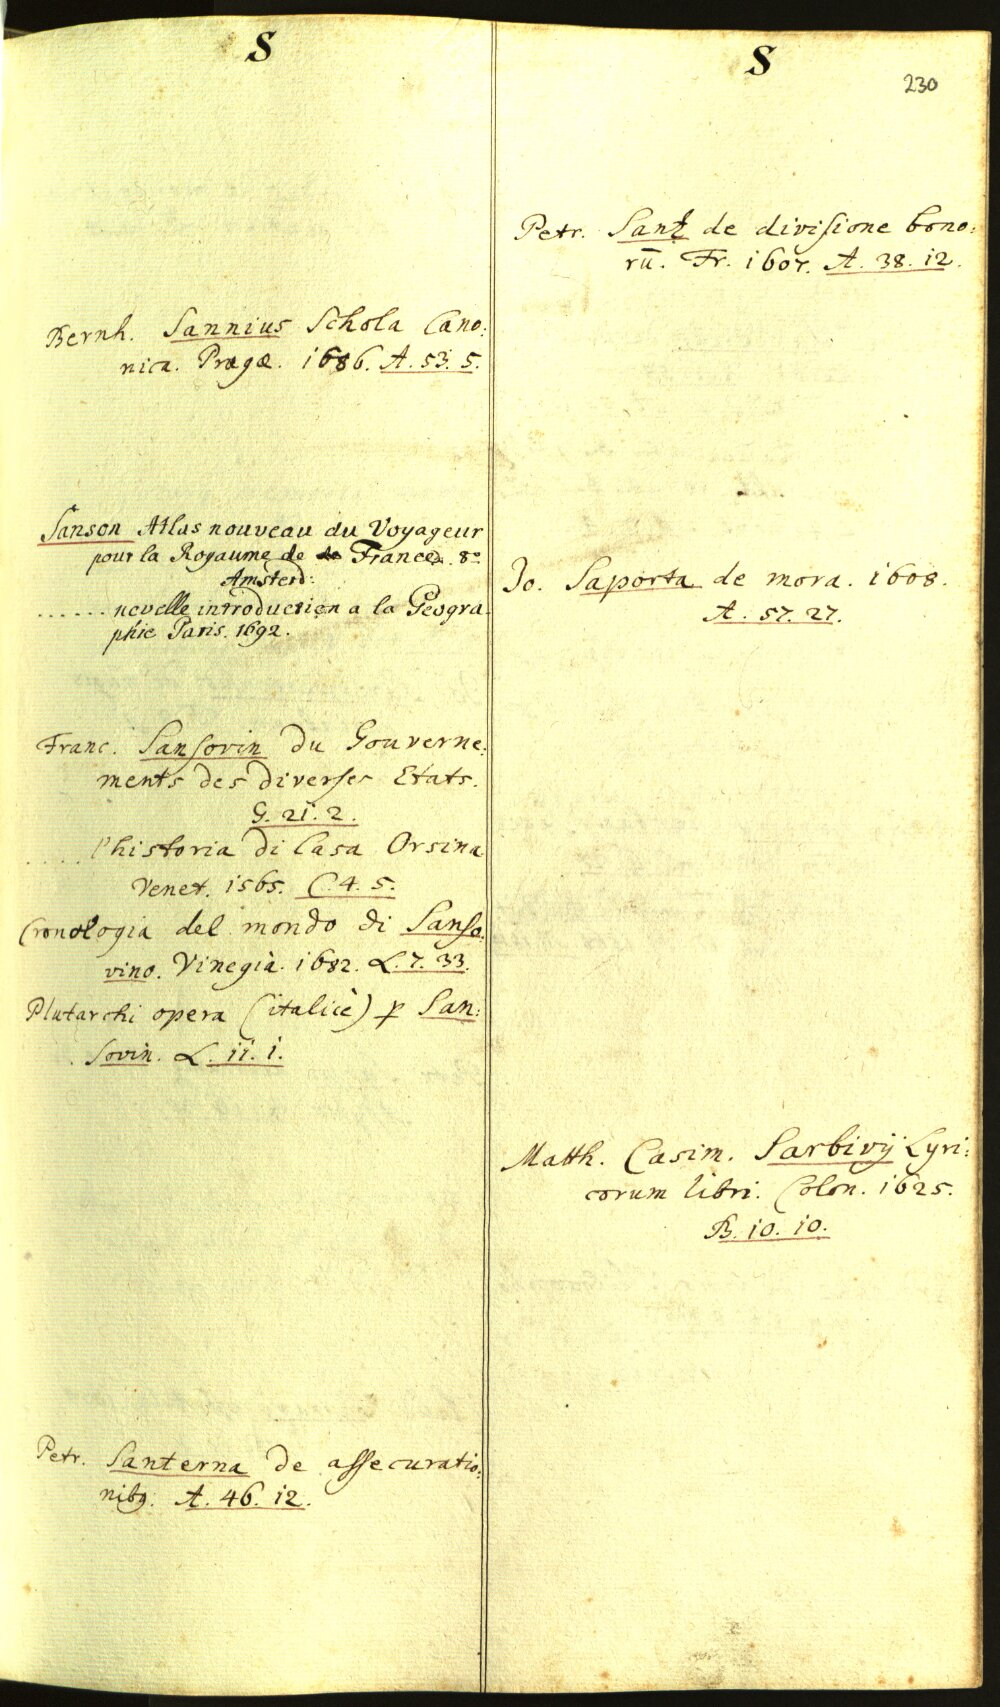 S
Bernh. Sannius Schola Cano:
nica. Pragæ. 1686. A. 53. 5.
Sanson Atlas nouveau du Voyageur
pour la Royaume de France. 8º
Amsterd:
...... nouvelle introduction a la Geogra
phie Paris. 1692.
Franc. Sansovin du Gouverne:
ments des diverses Etats.
G. 21. 2.
.... l'historia di Casa Orsina
Venet. 1565. C. 4. 5.
Cronologia del mondo di Sanso:
vino. Vinegià. 1682. L. 7. 33.
Plutarchi opera (italicè) p San:
sovin. L. 11. 1.
Petr. Santerna de assecuratio:
nibq. A. 46. 12.
S
230
Petr. Sant de divisione bono:
rū. Fr. 1607. A. 38. 12.
Jo. Saporta de mora. 1608.
A. 57. 27.
Matth. Casim. Sarbivij Lyri:
corum libri. Colon. 1625.
B. 10. 10.